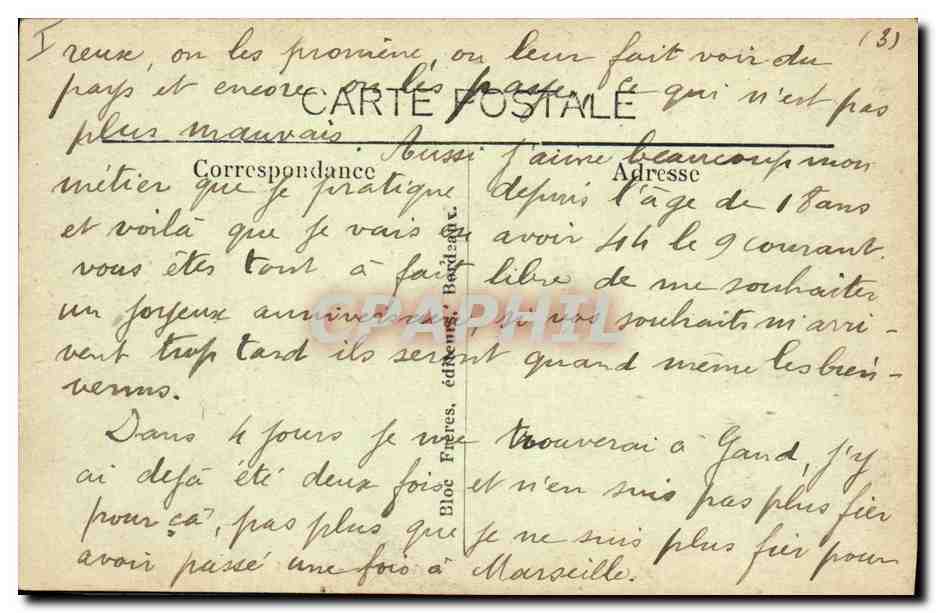 I (3)
reux, on les promène, on leur fait voir du
pays et encore on les paye, ce qui n'est pas
CARTE POSTALE
plus mauvais. Aussi j'aime beaucoup mon
Correspondance Adresse
métier que je pratique depuis l'âge de 18 ans
et voilà que je vais en avoir 44 le 9 courant.
vous êtes tout à fait libre de me souhaiter
un joyeux anniversaire, si vos souhaits m'arri-
CPAPHIL
vent trop tard ils seront quand même les bien-
venus.
Dans 4 jours je me trouverai à Gand, j'y
ai dejà été deux fois et n'en suis pas plus fier
pour ça, pas plus que je ne suis plus fier pour
avoir passé une fois à Marseille.
Bloc Frères, éditeurs, Bordeaux.